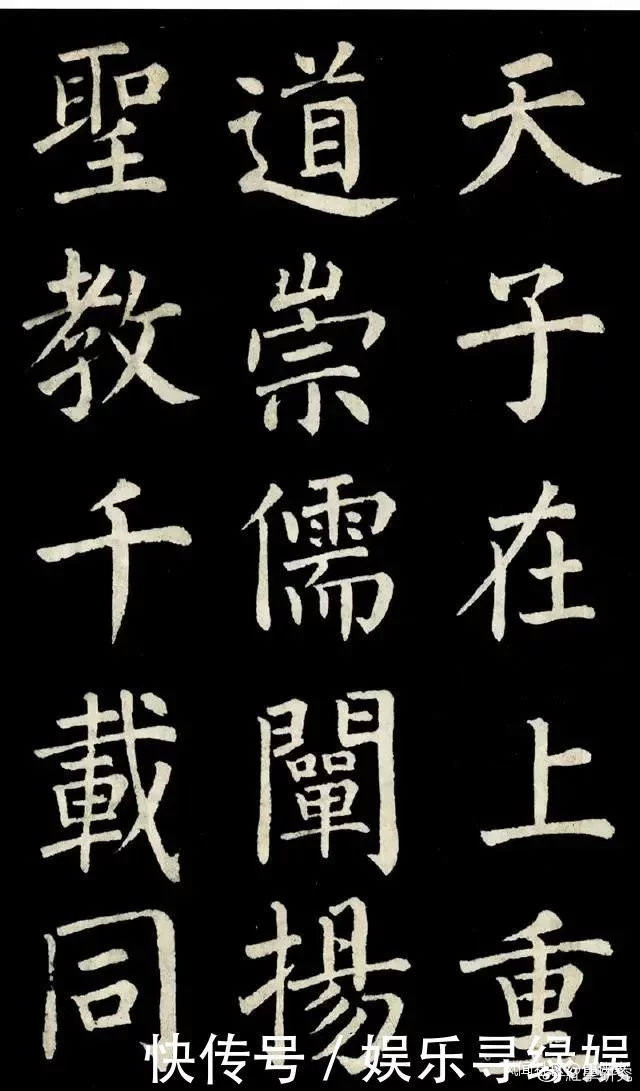 天子在上重
道崇儒闡揚
聖教千載同
快传号 / 娱乐寻绿娱